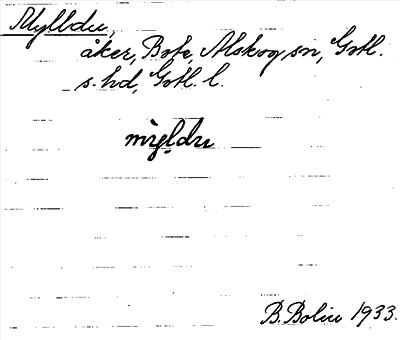 Mylldu,
åker, Bote, Alskog sn, Gotl.
s. hd, Gotl. l.
mỳldu
B. Bolin 1933.